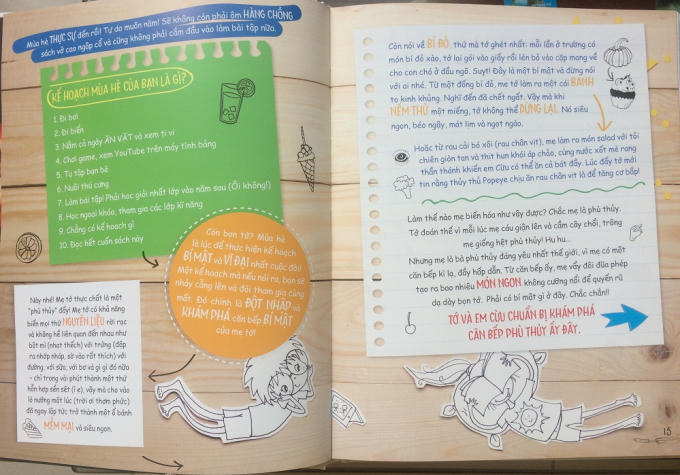 Mùa hè THỰC SỰ đến rồi! Tự do muôn năm! Sẽ không còn phải ôm HÀNG CHỒNG
sách vở cao ngộp cổ và cũng không phải cắm đầu vào làm bài tập nữa.
KẾ HOẠCH MÙA HÈ CỦA BẠN LÀ GÌ?
1. Đi bơi
2. Đi biển
3. Nằm cả ngày ĂN VẶT và xem ti vi
4. Chơi game, xem YouTube trên máy tính bảng
5. Tụ tập bạn bè
6. Nuôi thú cưng
7. Làm bài tập! Phải học giỏi nhất lớp vào năm sau (Ôi không!)
8. Học ngoại khóa, tham gia các lớp kĩ năng
9. Chẳng có kế hoạch gì
10. Đọc hết cuốn sách này
Còn bạn tớ? Mùa hè
là lúc để thực hiện kế hoạch
BÍ MẬT và VĨ ĐẠI nhất cuộc đời!
Một kế hoạch mà nếu nói ra, bạn sẽ
nhảy cẫng lên và đòi tham gia cùng
mất. Đó chính là ĐỘT NHẬP và
KHÁM PHÁ căn bếp BÍ MẬT
của mẹ tớ!
Này nhé! Mẹ tớ thực chất là một
"phù thủy" đấy! Mẹ tớ có khả năng
biến mọi thứ NGUYÊN LIỆU rời rạc
và không hề liên quan đến nhau như
bột mì (nhạt thếch) với trứng (đập
ra nhớp nháp, sờ vào rất thích) với
đường, với sữa, với bơ và gì gì đó nữa
- chỉ trong vài phút thành một thứ
hỗn hợp sền sệt (í ẹ), vậy mà cho vào
lò nướng một lúc (trời ơi thơm phức)
đã ngay lập tức trở thành một ổ bánh
MỀM MẠI và siêu ngon.
Còn nói về BÍ ĐỎ, thứ mà tớ ghét nhất: mỗi lần ở trường có
món bí đỏ xào, tớ lại gói vào giấy rồi lén bỏ vào cặp mang về
cho con chó ở đầu ngõ. Suỵt! Đây là một bí mật và đừng nói
với ai nhé. Từ một đống bí đỏ, mẹ tớ làm ra một cái BÁNH
to kinh khủng. Nghĩ đến đã chết ngất. Vậy mà khi
NẾM THỬ một miếng, tớ không thể DỪNG LẠI. Nó siêu
ngon, béo ngậy, mát lịm và ngọt ngào.
Hoặc từ rau cải bó xôi (rau chân vịt), mẹ làm ra món salad với tỏi
chiên giòn tan và thịt hun khói áp chảo, cùng nước xốt mè rang
thần thánh khiến em Cừu có thể ăn cả bát đầy. Lúc đấy tớ mới
tin rằng thủy thủ Popeye chịu ăn rau chân vịt là để tăng cơ bắp!
Làm thế nào mẹ biến hóa như vậy được? Chắc mẹ là phù thủy.
Tớ đoán thế vì mỗi lúc mẹ cáu giận lên và cầm cây chổi, trông
mẹ giống hệt phù thủy! Hu hu...
Nhưng mẹ là bà phù thủy đáng yêu nhất thế giới, vì mẹ có một
căn bếp kì lạ, đầy hấp dẫn. Từ căn bếp ấy, mẹ vẩy đôi đũa phép
tạo ra bao nhiêu MÓN NGON không cưỡng nổi để quyến rũ
dạ dày bọn tớ. Phải có bí mật gì ở đây. Chắc chắn!
TỚ VÀ EM CỪU CHUẨN BỊ KHÁM PHÁ
CĂN BẾP PHÙ THỦY ẤY ĐÂY.
15